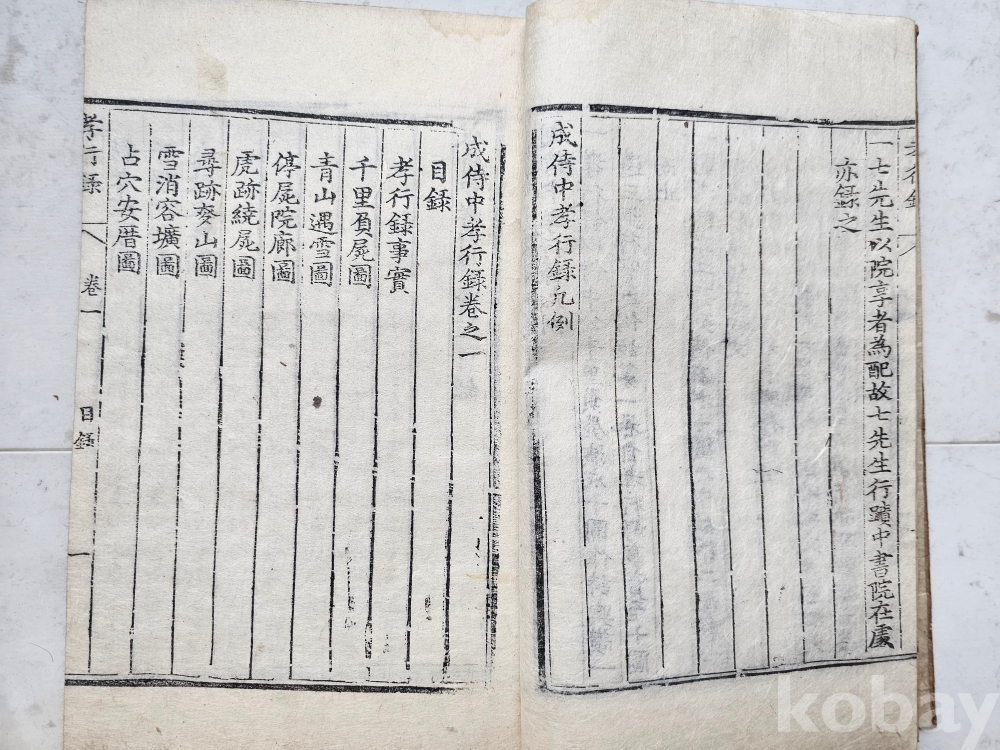 一七先生以院享者為配故七先生行蹟中書院在處
亦録之
成侍中孝行録凡例
成侍中孝行録卷之一
目録
孝行録事實
千里負屍圖
青山遇雪圖
停屍院廊圖
虎跡繞屍圖
尋跡登山圖
雪消容壙圖
占穴安厝圖
孝行録
卷一
目録
一
kobay